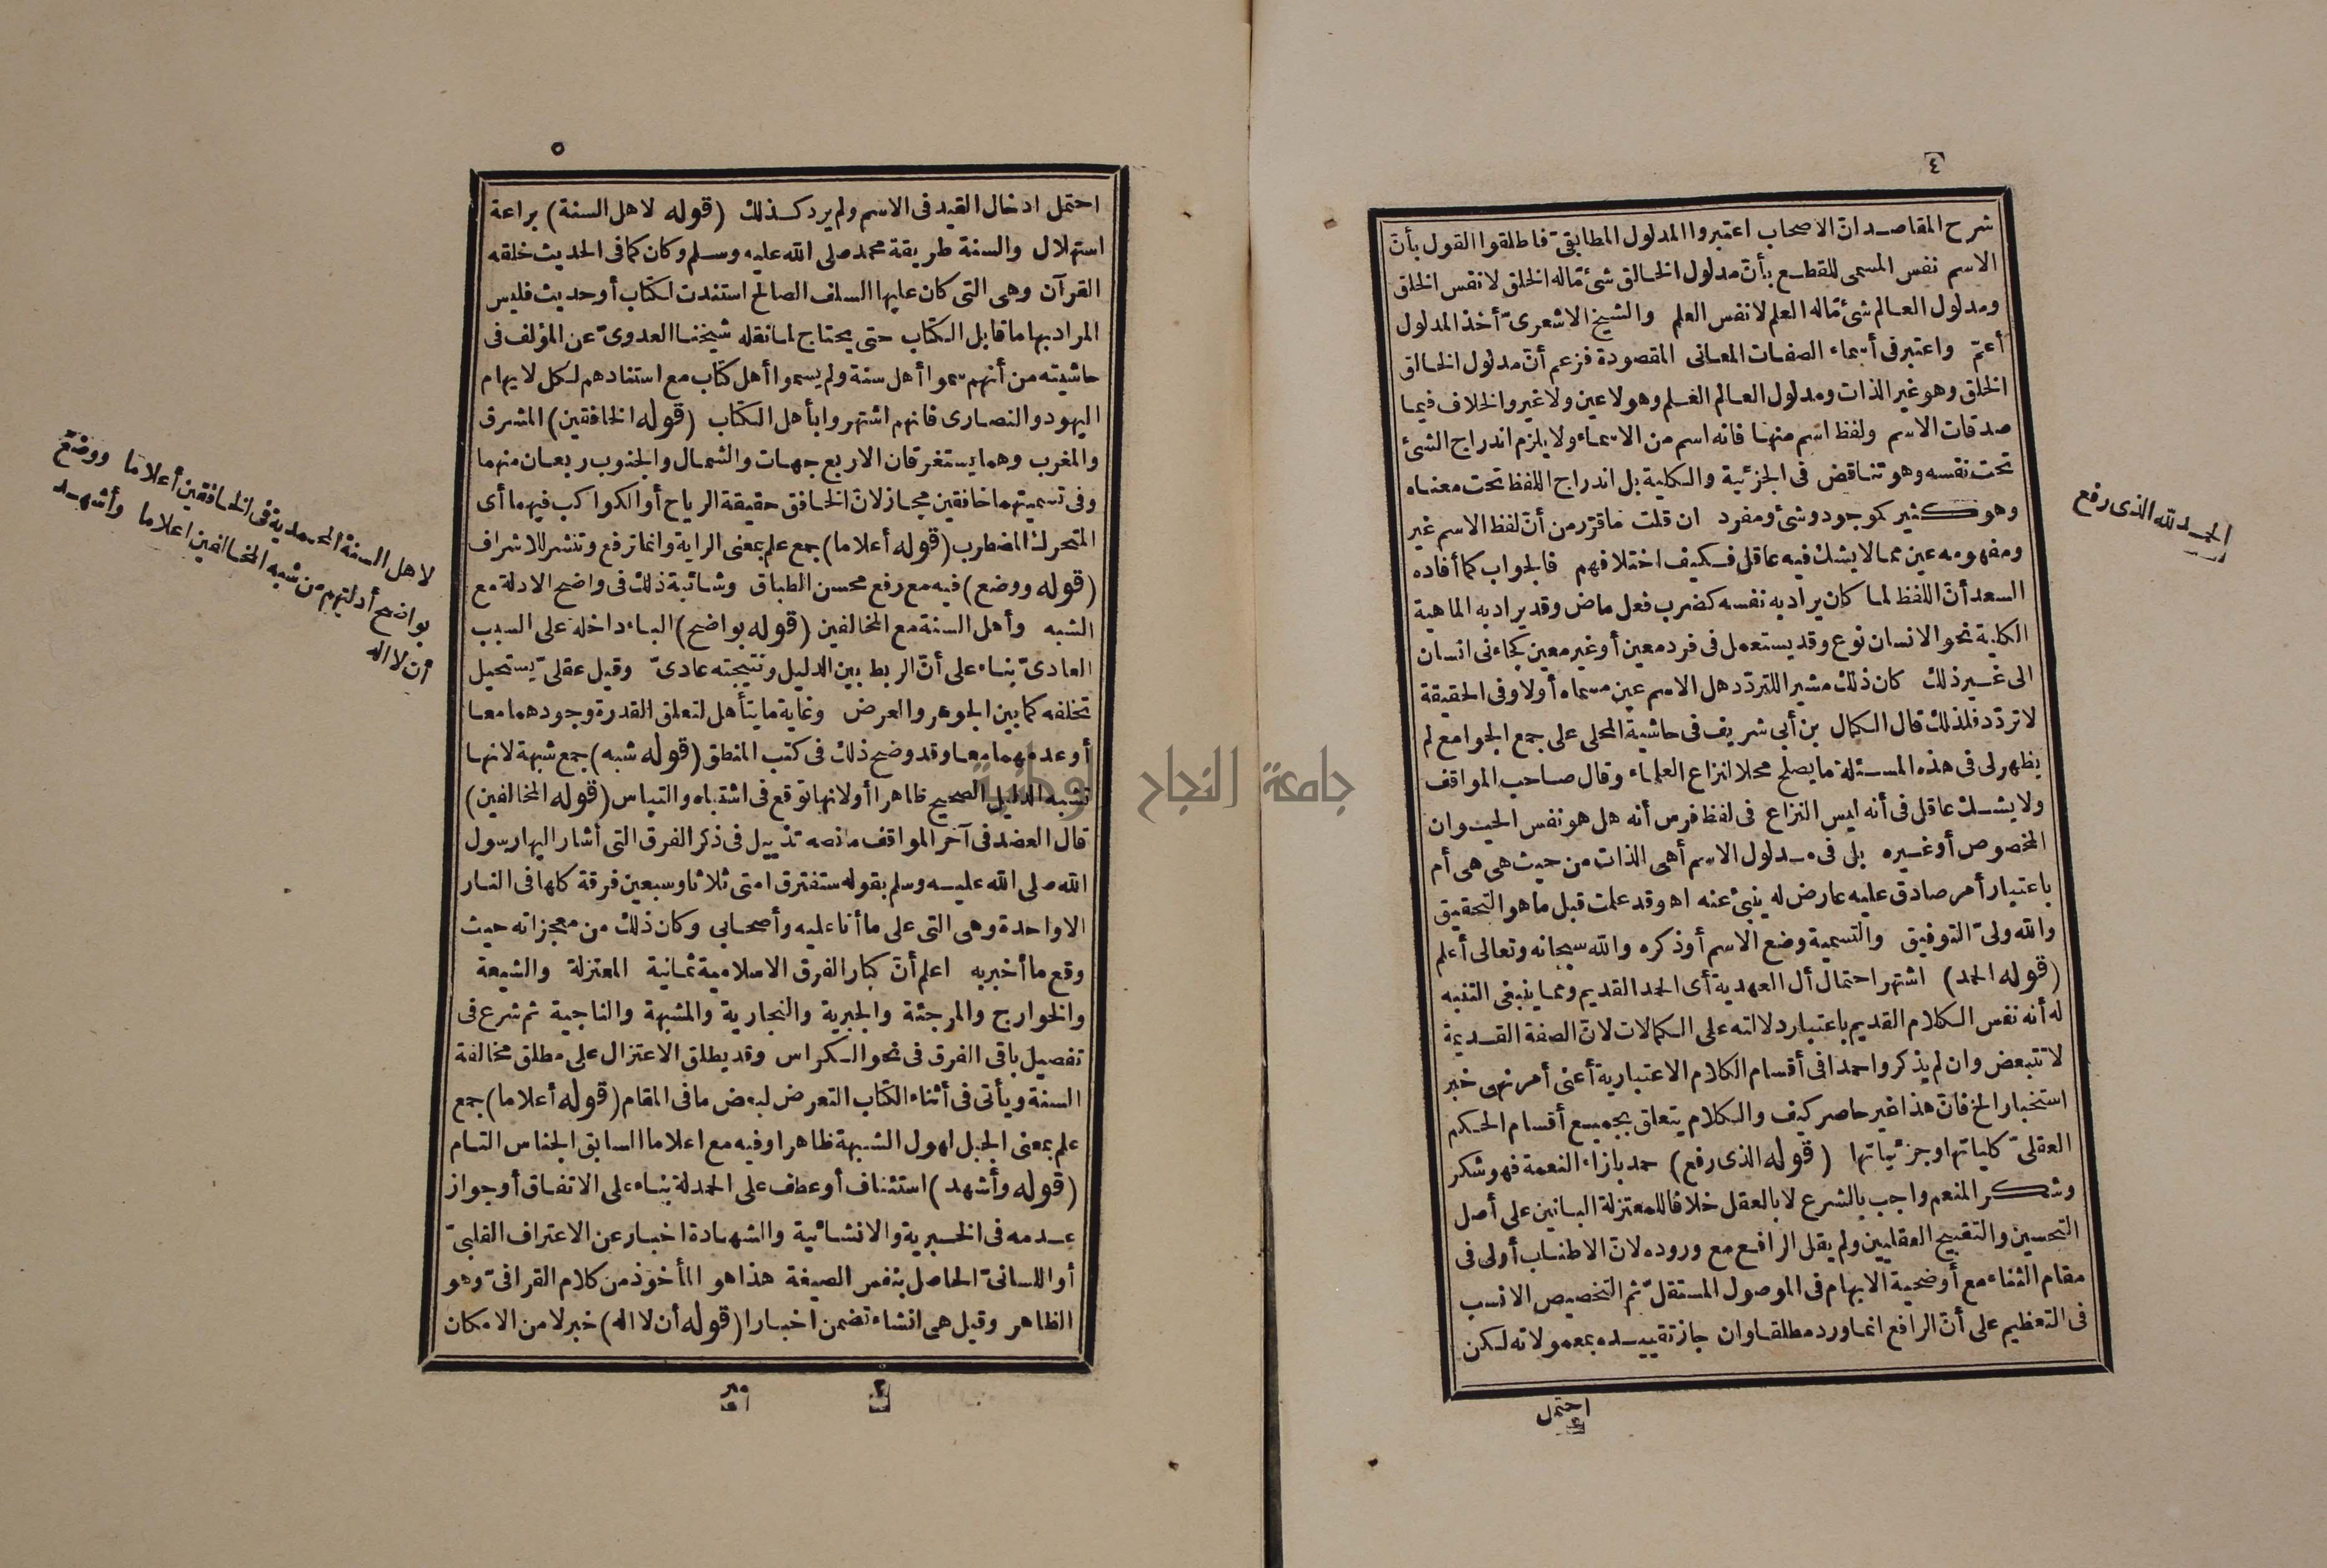 ٤
شرح المقاصد ان الاصحاب اعتبروا المدلول المطابقىّ فاطلقوا القول بأنّ
الاسم نفس المسمى للقطع بأنّ مدلول الخالق شئ ماله الخلق لا نفس الخلق
ومدلول العالم شئ ماله العلم لا نفس العلم والشيخ الاشعرىّ أخذ المدلول
أعمّ واعتبر فى أسماء الصفات المعانى المقصودة فزعم أنّ مدلول الخالق
الخلق وهو غير الذات ومدلول العالم العلم وهو لاعين ولا غير والخلاف فيما
صدقات الاسم ولفظ اسم منها فانه اسم من الاسماء ولا يلزم اندراج الشئ
تحت نفسه وهو تناقض فى الجزئية والكلية بل اندراج اللفظ تحت معناه
وهو كثير كموجود وشئ ومفرد ان قلت ما قرّر من أنّ لفظ الاسم غير
ومفهومه عين مما لا يشك فيه عاقل فكيف اختلافهم فالجواب كما أفاده
السعد أنّ اللفظ لما كان يراد به نفسه كضرب فعل ماض وقد يراد به الماهية
الكلية نحو الانسان نوع وقد يستعمل فى فرد معين أو غير معين كجاءنى انسان
الى غير ذلك كان ذلك مشيرا للتردّد هل الاسم عين مسماه أولا وفى الحقيقة
لا تردّد فلذلك قال الكمال بن أبى شريف فى حاشية المحلى على جمع الجوامع لم
يظهر لى فى هذه المسئلة ما يصلح محلا لنزاع العلماء وقال صاحب المواقف
ولا يشك عاقل فى أنه ليس النزاع فى لفظ فرس أنه هل هو نفس الحيوان
المخصوص أو غيره بل فى مدلول الاسم أهى الذات من حيث هى هى أم
باعتبار أمر صادق عليه عارض له ينبئ عنه اه وقد علمت قبل ما هو التحقيق
والله ولىّ التوفيق والتسمية وضع الاسم أو ذكره والله سبحانه وتعالى أعلم
(قوله الحمد) اشتهر احتمال أل العهدية أى الحمد القديم ومما ينبغى التنبه
له أنه نفس الكلام القديم باعتبار دلالته على الكمالات لانّ الصفة القديمة
لا تتبعض وان لم يذكروا حمدا فى أقسام الكلام الاعتبارية أعنى أمر نهى خبر
استخبار الخ فانّ هذا غير حاصر كيف والكلام يتعلق بجميع أقسام الحكم
العقلىّ كلياتها وجزئياتها (قوله الذى رفع) حمد بازاء النعمة فهو شكر
وشكر المنعم واجب بالشرع لا بالعقل خلافا للمعتزلة البانين على أصل
التحسين والتقبيح العقليين ولم يقل الرافع مع وروده لانّ الاطناب أولى فى
مقام الثناء مع أوضحية الابهام فى الموصول المستقلّ ثم التخصيص الانسب
فى التعظيم على أنّ الرافع انما ورد مطلقا وان جاز تقييده بمعمولاته لكن
احتمل
الحمد لله الذى رفع
٥
احتمل ادخال القيد فى الاسم ولم يرد كذلك (قوله لاهل السنة) براعة
استهلال والسنة طريقة محمد صلى الله عليه وسلم وكان كما فى الحديث خلقه
القرآن وهى التى كان عليها السلف الصالح استندت لكتاب أو حديث فليس
المراد بها ما قابل الكتاب حتى يحتاج لما نقله شيخنا العدوىّ عن المؤلف فى
حاشيته من أنهم سموا أهل سنة ولم يسموا أهل كتاب مع استنادهم لكل لايهام
اليهود والنصارى فانهم اشتهروا بأهل الكتاب (قوله الخافقين) المشرق
والمغرب وهما يستغرقان الاربع جهات والشمال والجنوب ربعان منهما
وفى تسميتهما خافقين مجاز لانّ الخافق حقيقة الرياح أو الكواكب فيهما أى
المتحرك المضطرب (قوله أعلاما) جمع علم بمعنى الراية وانما ترفع وتنشر للاشراف
(قوله ووضع) فيه مع رفع محسن الطباق وشائبة ذلك فى واضح الادلة مع
الشبه وأهل السنة مع المخالفين (قوله بواضح) الباء داخلة على السبب
العادىّ بناء على أنّ الربط بين الدليل ونتيجته عادىّ وقيل عقلىّ يستحيل
تخلفه كما بين الجوهر والعرض وغاية ما يتأهل لتعلق القدرة وجودهما معا
أو عدمهما معا وقد وضح ذلك فى كتب المنطق (قوله شبه) جمع شبهة لانها
تشبه الدليل الصحيح ظاهرا أو لانها توقع فى اشتباه والتباس (قوله المخالفين)
قال العضد فى آخر المواقف مانصه تذييل فى ذكر الفرق التى أشار اليها رسول
الله صلى الله عليه وسلم بقوله ستفترق امتى ثلاثا وسبعين فرقة كلها فى النار
الا واحدة وهى التى على ما أنا عليه وأصحابى وكان ذلك من معجزاته حيث
وقع ما أخبر به اعلم أنّ كبار الفرق الاسلامية ثمانية المعتزلة والشيعة
والخوارج والمرجئة والجبرية والنجارية والمشبهة والناجية ثم شرع فى
تفصيل باقى الفرق فى نحو الكراس وقد يطلق الاعتزال على مطلق مخالفة
السنة ويأتى فى أثناء الكتاب التعرض لبعض ما فى المقام (قوله أعلاما) جمع
علم بمعنى الجبل لهول الشبهة ظاهرا وفيه مع اعلاما السابق الجناس التام
(قوله وأشهد) استئناف أو عطف على الحمدلة بناء على الاتفاق أو جواز
عدمه فى الخبرية والانشائية والشهادة اخبار عن الاعتراف القلبىّ
أو اللسانىّ الحاصل بنفس الصيغة هذا هو المأخوذ من كلام القرافىّ وهو
الظاهر وقيل هى انشاء تضمن اخبارا (قوله أن لا اله) خبر لا من الامكان
لاهل السنة المحمدية فى الخافقين أعلاما ووضع
بواضح أدلتهم من شبه المخالفين اعلاما وأشهد
أن لا اله
جامعة النجاح الوطنية